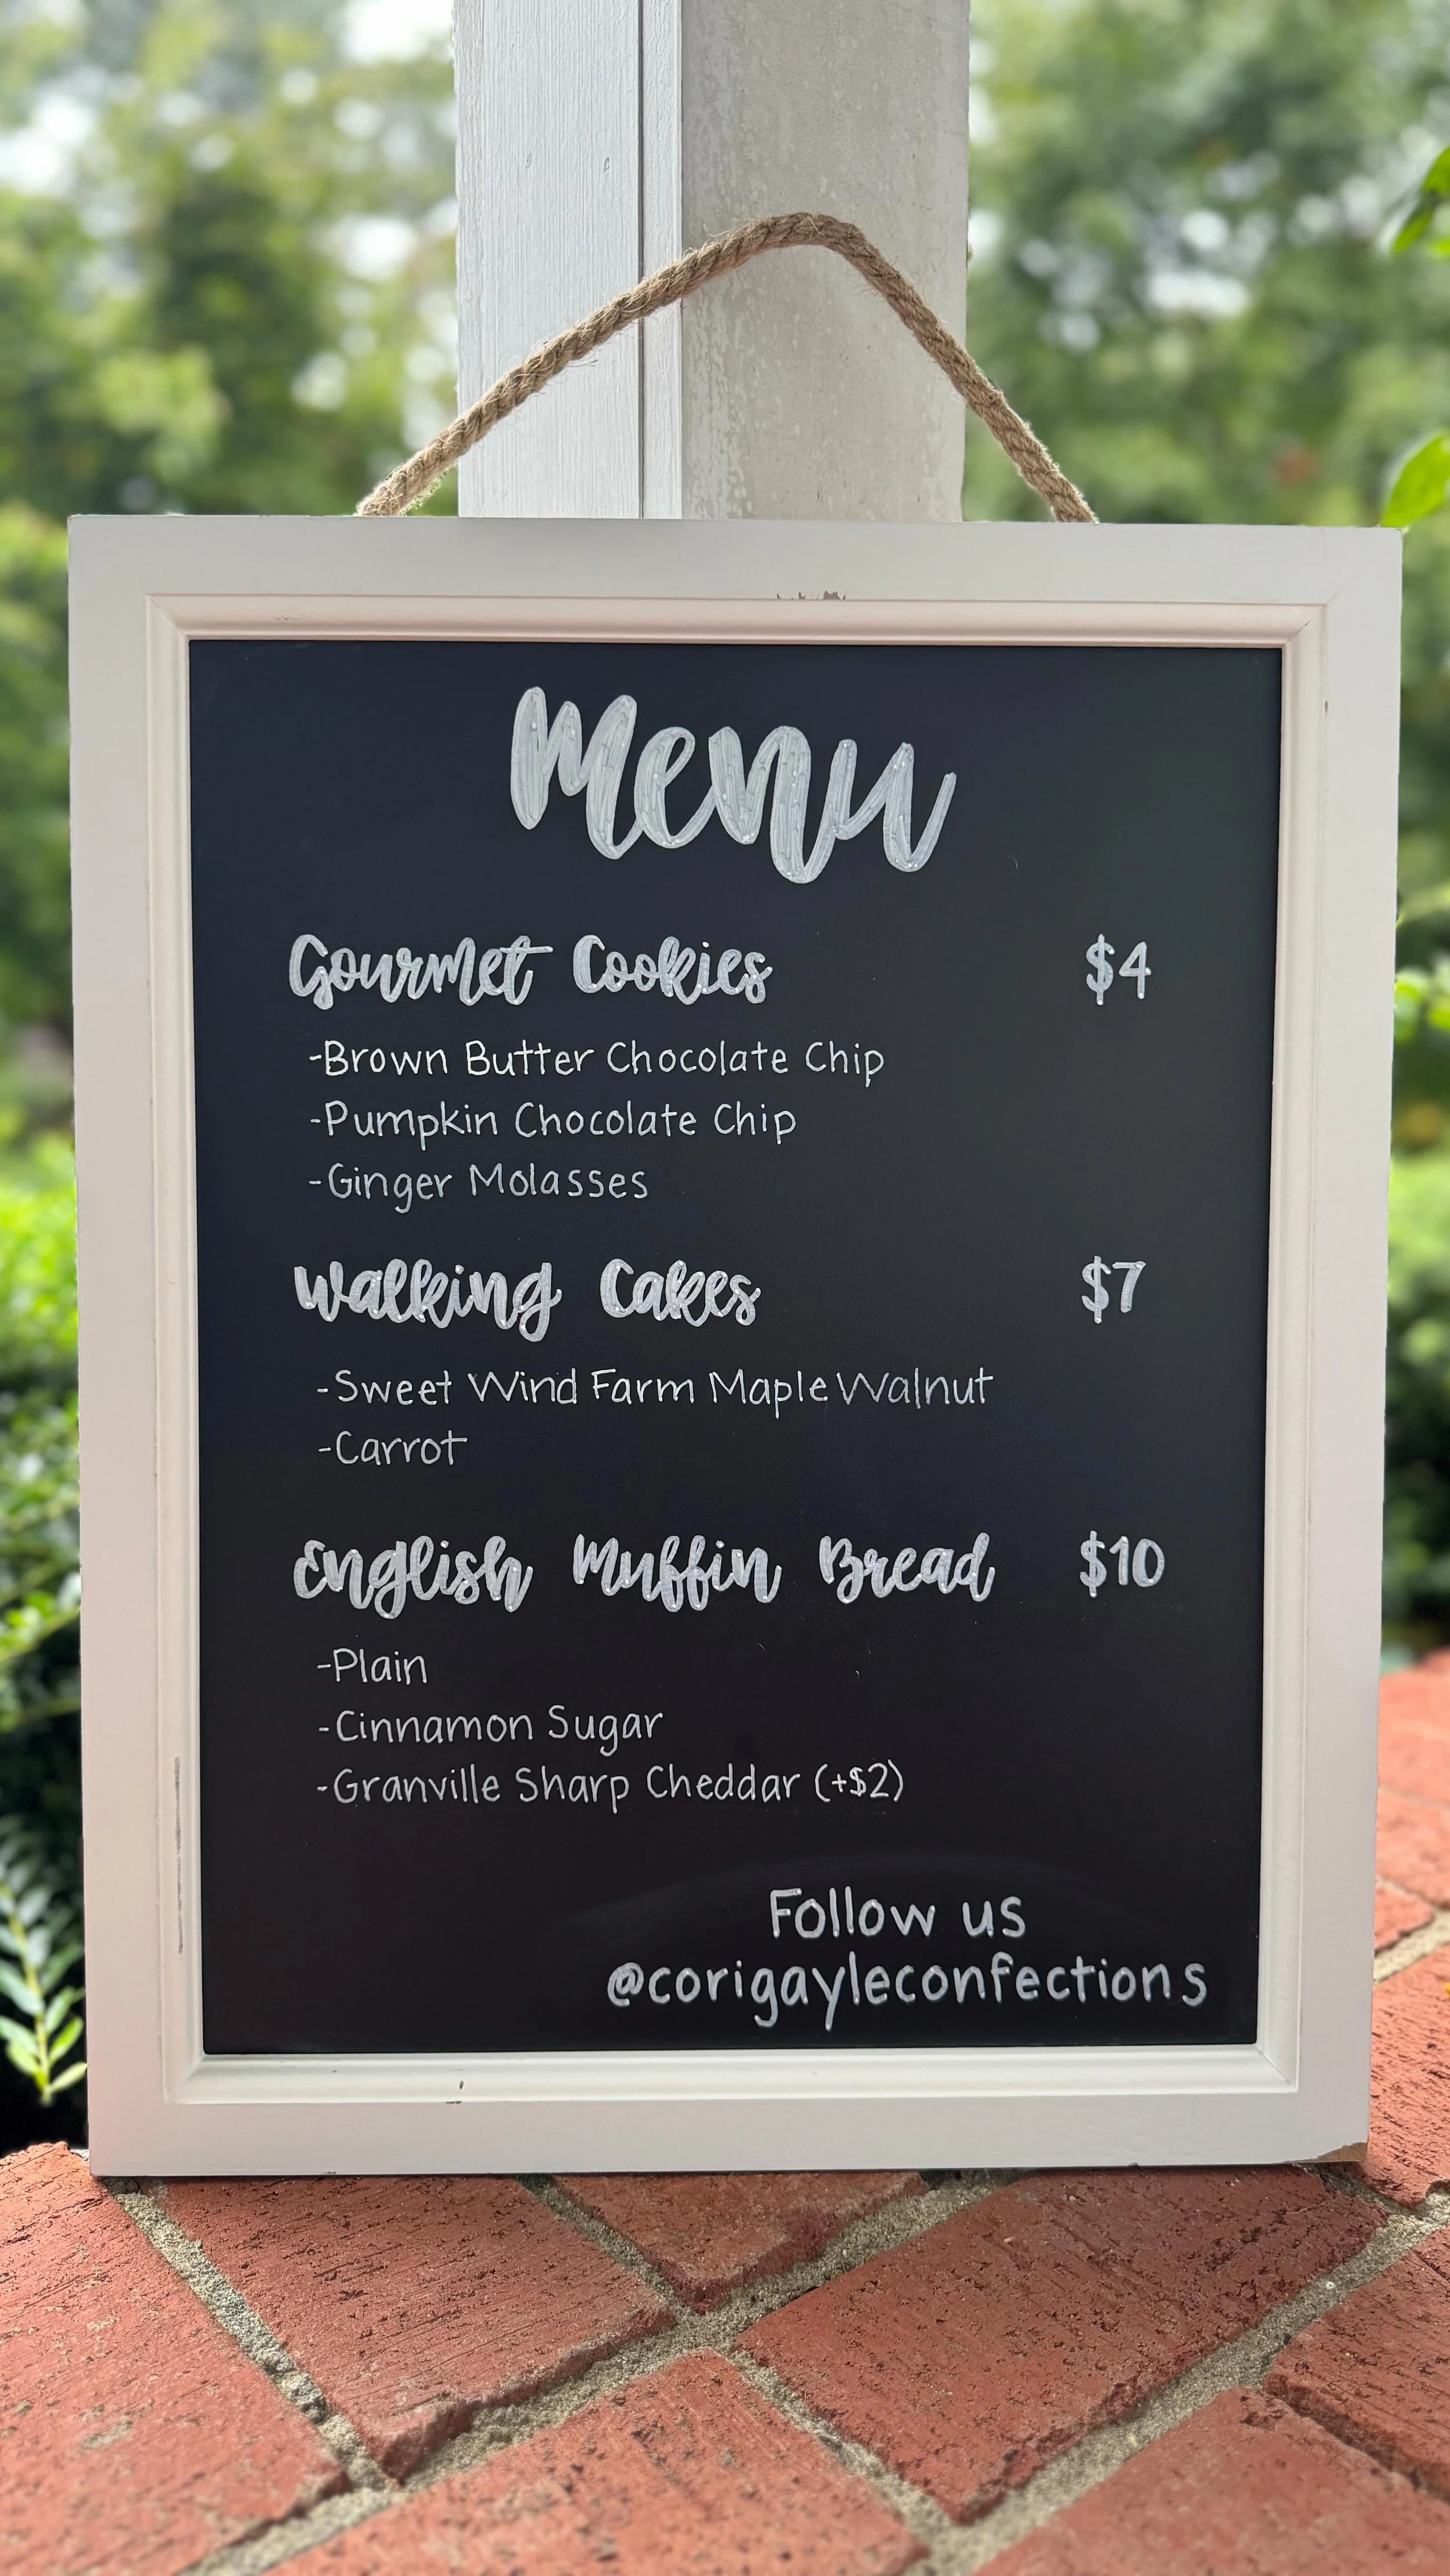 Menu
Gourmet Cookies $4
-Brown Butter Chocolate Chip
-Pumpkin Chocolate Chip
-Ginger Molasses
Walking Cakes $7
-Sweet Wind Farm Maple Walnut
-Carrot
English Muffin Bread $10
-Plain
-Cinnamon Sugar
-Granville Sharp Cheddar (+$2)
Follow us
@corigayleconfections